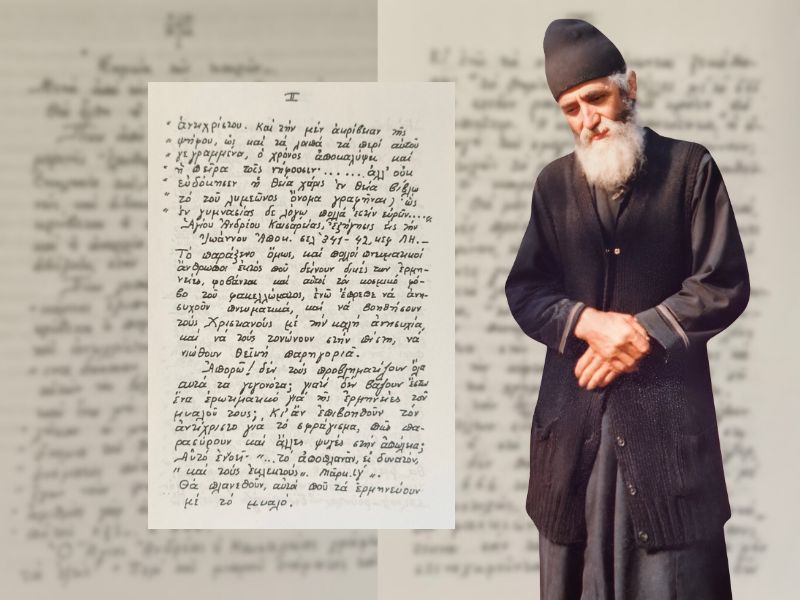 II
" ἀντιχρίστου. Καί τήν μέν ἀκρίβειαν τῆς
" ψήφου, ὡς καί τά λοιπά τά περί αὐτοῦ
" γεγραμμένα, ὁ χρόνος ἀποκαλύψει καί
" ἡ πεῖρα τοῖς νήφουσιν....... ἀλλ' οὐκ
" εὐδόκησεν ἡ θεία χάρις ἐν θεία βίβλω
" τό τοῦ λυμεῶνος ὄνομα γραφῆναι, ὡς
" ἐν γυμνασίας δέ λόγω πολλά ἐστίν εὑρεῖν....."
Ἁγίου Ἀνδρέου Καισαρείας, Ἐξήγησις εἰς τήν
Ἰωάννου Ἀποκ. σελ 341-42, κεφ ΛΗ._
Τό παράξενο ὅμως, καί πολλοί πνευματικοί
ἄνθρωποι ἐκτός πού δίνουν δικές των ἑρμη-
νείες, φοβοῦνται καί αὐτοί τόν κοσμικό φό-
βο τοῦ φακελλώματος, ἐνῶ ἔπρεπε νά ἀνη-
συχοῦν πνευματικά, καί νά βοηθήσουν
τούς Χριστιανούς μέ τήν καλή ἀνησυχία,
καί νά τούς τονώνουν στήν πίστη, νά
νιώθουν θεϊκή παρηγοριά.
Ἀπορῶ! δέν τούς προβληματίζουν ὅλα
αὐτά τά γεγονότα; γιατί δέν βάζουν ἔστω
ἕνα ἐρωτηματικό γιά τῆς ἑρμηνεῖες τοῦ
μυαλοῦ τους; Κι' ἄν ἐπιβοηθοῦν τόν
ἀντίχριστο γιά τό σφράγισμα, πῶς πα-
ρασύρουν καί ἄλλες ψυχές στήν ἀπώλεια;
Αὐτό ἐνοεῖ- "...τό ἀποπλανᾶν, εἰ δυνατόν,
" καί τούς ἐκλεκτούς". Μάρκ. ιγ΄
Θά πλανεθοῦν, αὐτοί πού τά ἑρμηνεύουν
μέ τό μυαλό.